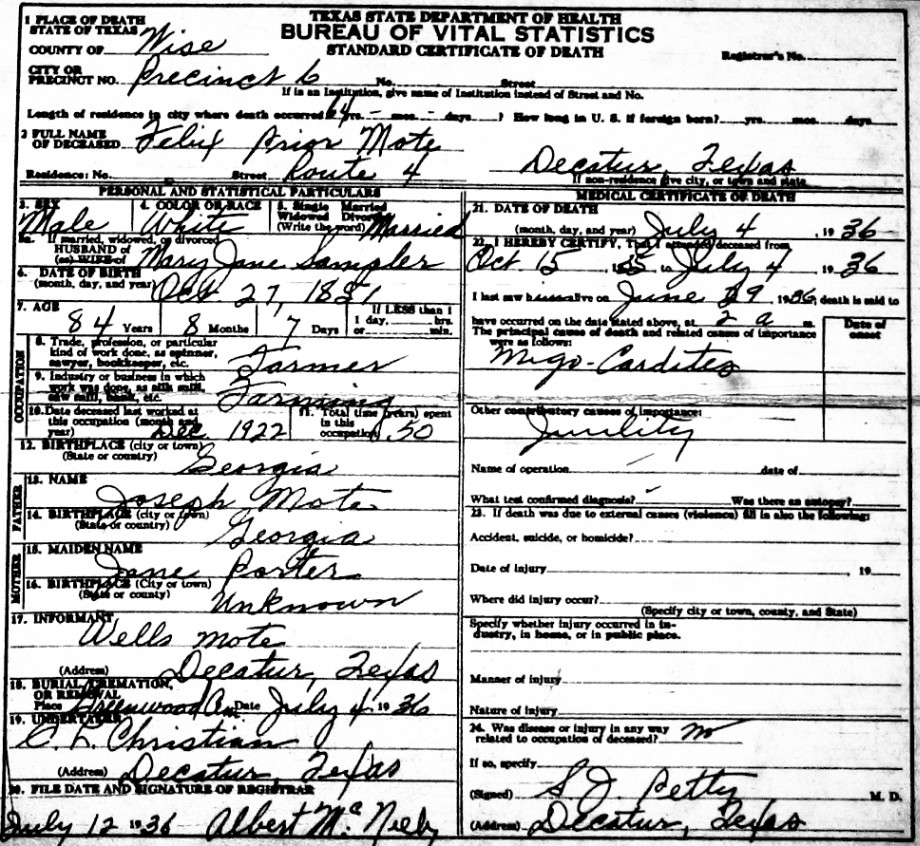 TEXAS STATE DEPARTMENT OF HEALTH
BUREAU OF VITAL STATISTICS
STANDARD CERTIFICATE OF DEATH
1 PLACE OF DEATH
STATE OF TEXAS
COUNTY OF Wise
Registrar's No.
CITY OR PRECINCT NO. Precinct 6 No. Street
If in an Institution, give name of Institution instead of Street and No.
Length of residence in city where death occurred 64 yrs. - mos. - days. ? How long in U. S. if foreign born? yrs. mos. days
2 FULL NAME OF DECEASED Felix Prior Mote
Residence: No. Street Route 4 Decatur, Texas
If non-residence give city, or town and state
PERSONAL AND STATISTICAL PARTICULARS
3. SEX Male
4. COLOR OR RACE White
5. Single Married Widowed Divorced (Write the word) Married
5a. If married, widowed, or divorced
HUSBAND of (or) WIFE of Mary Jane Sampler
6. DATE OF BIRTH (month, day, and year) Oct 27, 1851
7. AGE 84 Years 8 Months 7 Days If LESS than 1 day, hrs. or min.
OCCUPATION
8. Trade, profession, or particular kind of work done, as spinner, sawyer, bookkeeper, etc. Farmer
9. Industry or business in which work was done, as silk mill, saw mill, bank, etc. Farming
10. Date deceased last worked at this occupation (month and year) Dec 1922
11. Total time (years) spent in this occupation 50
12. BIRTHPLACE (city or town) (State or country) Georgia
FATHER
13. NAME Joseph Mote
14. BIRTHPLACE (city or town) (State or country) Georgia
MOTHER
15. MAIDEN NAME Jane Porter
16. BIRTHPLACE (City or town) (State or county) Unknown
17. INFORMANT Wells Mote
(Address) Decatur, Texas
18. BURIAL, CREMATION, OR REMOVAL
Place Greenwood Date July 4 1936
19. UNDERTAKER C. L. Christian
(Address) Decatur, Texas
20. FILE DATE AND SIGNATURE OF REGISTRAR
July 12 1936 Albert Mc Neely
MEDICAL CERTIFICATE OF DEATH
21. DATE OF DEATH
(month, day, and year) July 4 1936
22. I HEREBY CERTIFY, That I attended deceased from
Oct 15, 1935 to July 4 1936
I last saw him alive on June 29 1936, death is said to
have occurred on the date stated above, at 2 a m.
The principal cause of death and related causes of importance were as follows:
Date of onset
Myo-Cardites
Other contributory causes of importance:
Name of operation date of
What test confirmed diagnosis? Was there an autopsy?
23. If death was due to external causes (violence) fill in also the following:
Accident, suicide, or homicide?
Date of injury , 19
Where did injury occur?
(Specify city or town, county, and State)
Specify whether injury occurred in industry, in home, or in public place.
Manner of injury
Nature of injury
24. Was disease or injury in any way related to occupation of deceased? no
If so, specify
(Signed) S. J. Petty M. D.
(Address) Decatur, Texas